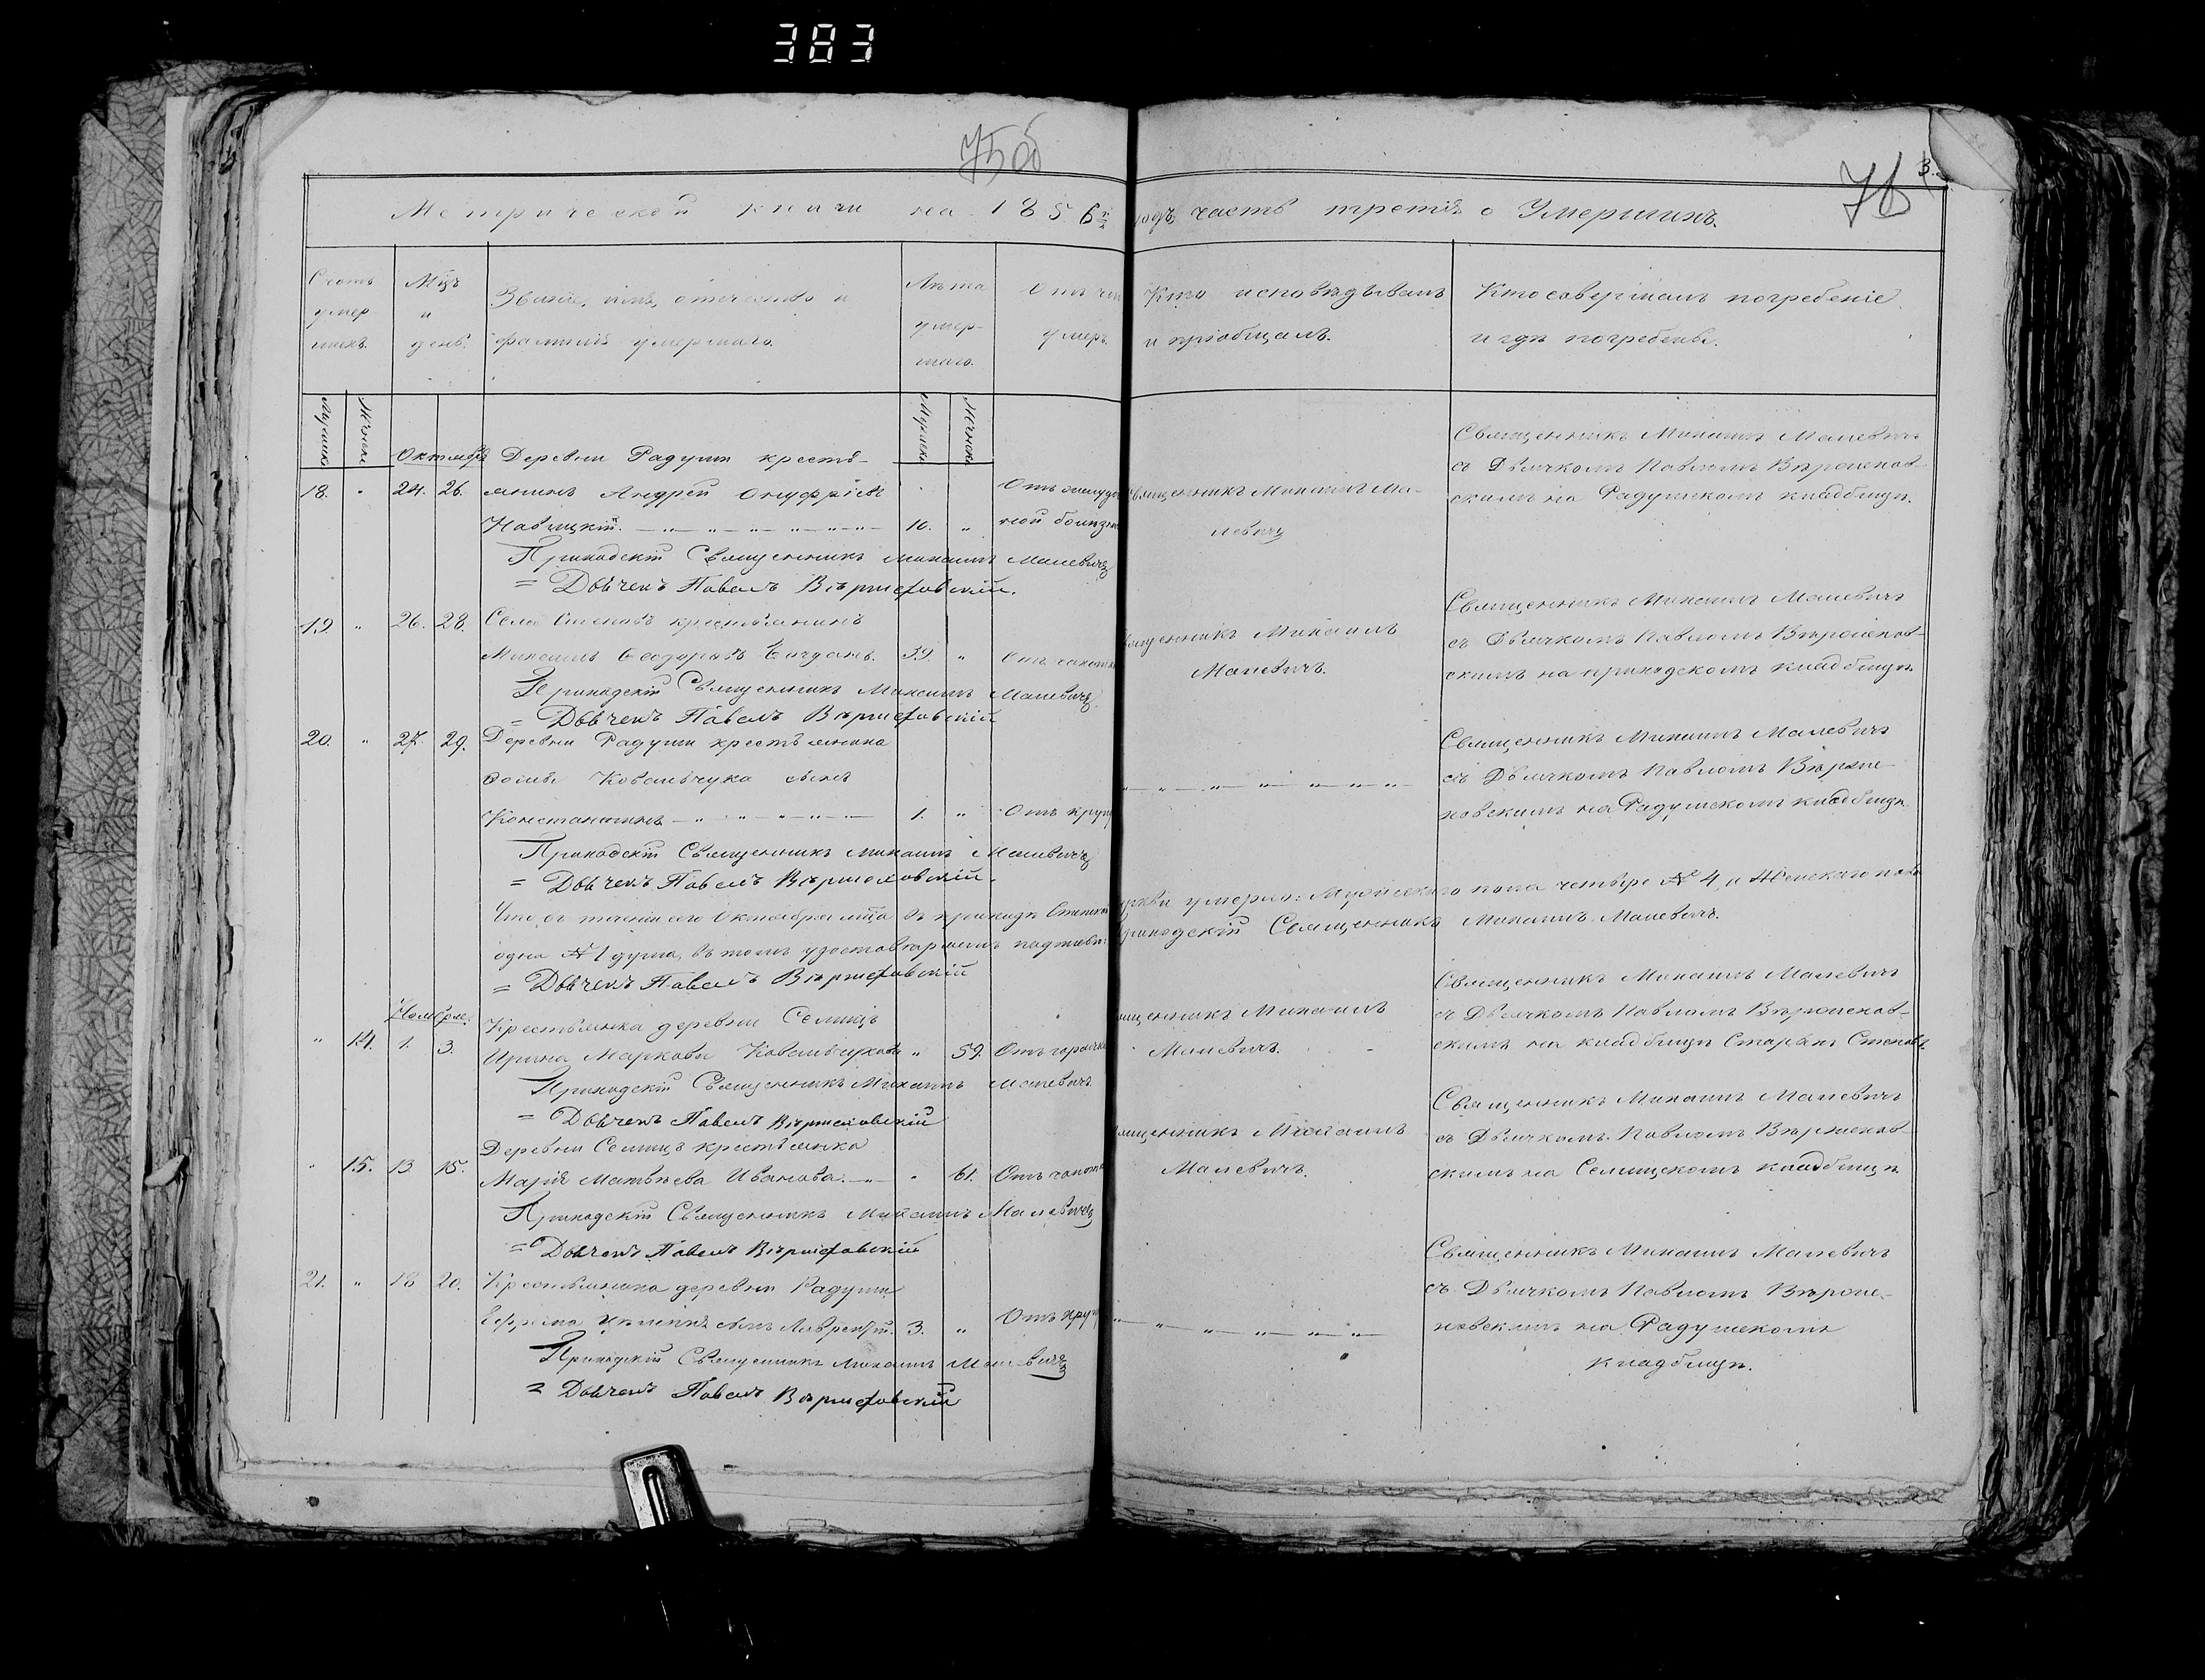 383
75 об
76
3.
Метрической книги на 1856й годъ, часть третія о Умершихъ.
Счетъ умер шихъ.
Мѣцъ и день.
Званіе, имя, отчество и фамилія умершаго.
Лѣта умер- шаго.
Отъ чего умеръ.
Кто исповѣдывалъ и пріобщалъ.
Кто совершалъ погребеніе и гдѣ погребены.
Мужеска Женска
Мужеска Женска
Октябрь
18. " 24. 26.
Деревни Радушi кресть-
янинъ Андрей Онуфріевъ
Навицкій. 10. "
Отъ
ной болѣзни
Священникъ Михаилъ Ма-
левичъ
Священникъ Михаилъ Малевичъ
съ Дьячкомъ Павломъ
скимъ на Радушскомъ кладбищѣ.
Приходскій Священникъ Михаилъ Малевичъ
= Дьячекъ Павелъ
19. " 26. 28.
Села Степовъ крестьянинъ
Михаилъ Ѳеодоровъ Богданъ. 39. " Отъ чахотки
Священникъ Михаилъ
Малевичъ.
Священникъ Михаилъ Малевичъ
съ Дьячкомъ Павломъ
скимъ на приходскомъ кладбищѣ.
Приходскій Священникъ Михаилъ Малевичъ
= Дьячекъ Павелъ
20. " 27. 29.
Деревни Радушi крестьянина
Ѳомы Ковальчука сынъ
Константинъ 1. " Отъ круп
Священникъ Михаилъ Малевичъ
съ Дьячкомъ Павломъ
новскимъ на Радушскомъ кладбищѣ.
Приходскій Священникъ Михаилъ Малевичъ
= Дьячекъ Павелъ
Что въ теченіи сего Октября мѣсяца въ приходѣ церкви умерло: Мужескаго пола четыре № 4, и Женскаго пола
одна № 1 душа, въ томъ Приходскій Священникъ Михаилъ Малевичъ.
= Дьячекъ Павелъ
Ноября.
" 14. 1. 3.
Крестьянка деревни Селищъ
Ирина Маркова Ковальчукова " 59. Отъ горячки
Священникъ Михаилъ
Малевичъ.
Священникъ Михаилъ Малевичъ
съ Дьячкомъ Павломъ
скимъ на кладбищѣ
Приходскій Священникъ Михаилъ Малевичъ.
= Дьячекъ Павелъ
" 15. 13 15.
Деревни Селищъ крестьянка
Марія Матвѣева Иванова. " 61. Отъ чахотки
Священникъ Михаилъ
Малевичъ.
Священникъ Михаилъ Малевичъ
съ Дьячкомъ Павломъ
скимъ на Селищскомъ кладбищѣ
Приходскій Священникъ Михаилъ Малевичъ
= Дьячекъ Павелъ
21. " 18 20.
Крестьянина деревни Радушi
Ефрема сынъ Лаврентій. 3. " Отъ круп
Священникъ Михаилъ Малевичъ
съ Дьячкомъ Павломъ
новскимъ на Радушскомъ
кладбищѣ.
Приходскій Священникъ Михаилъ Малевичъ
= Дьячекъ Павелъ